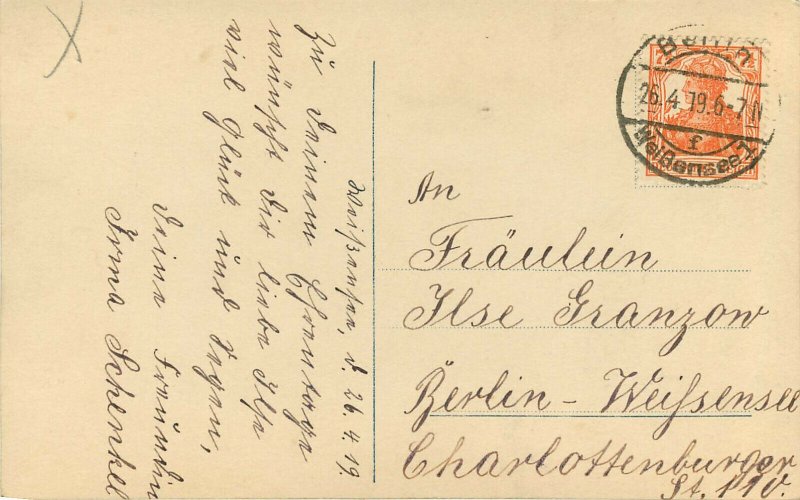 Weißensee, d. 26.4.19.
Zu Deinem Ehrentage
wünscht Dir liebe Ilse
viel Glück und Segen,
Deine Freundin
Irma Schenkel
Berlin
26.4.19.6-7N
f
Weißensee 1
An
Fräulein
Ilse Granzow
Berlin-Weißensee
Charlottenburger
St.